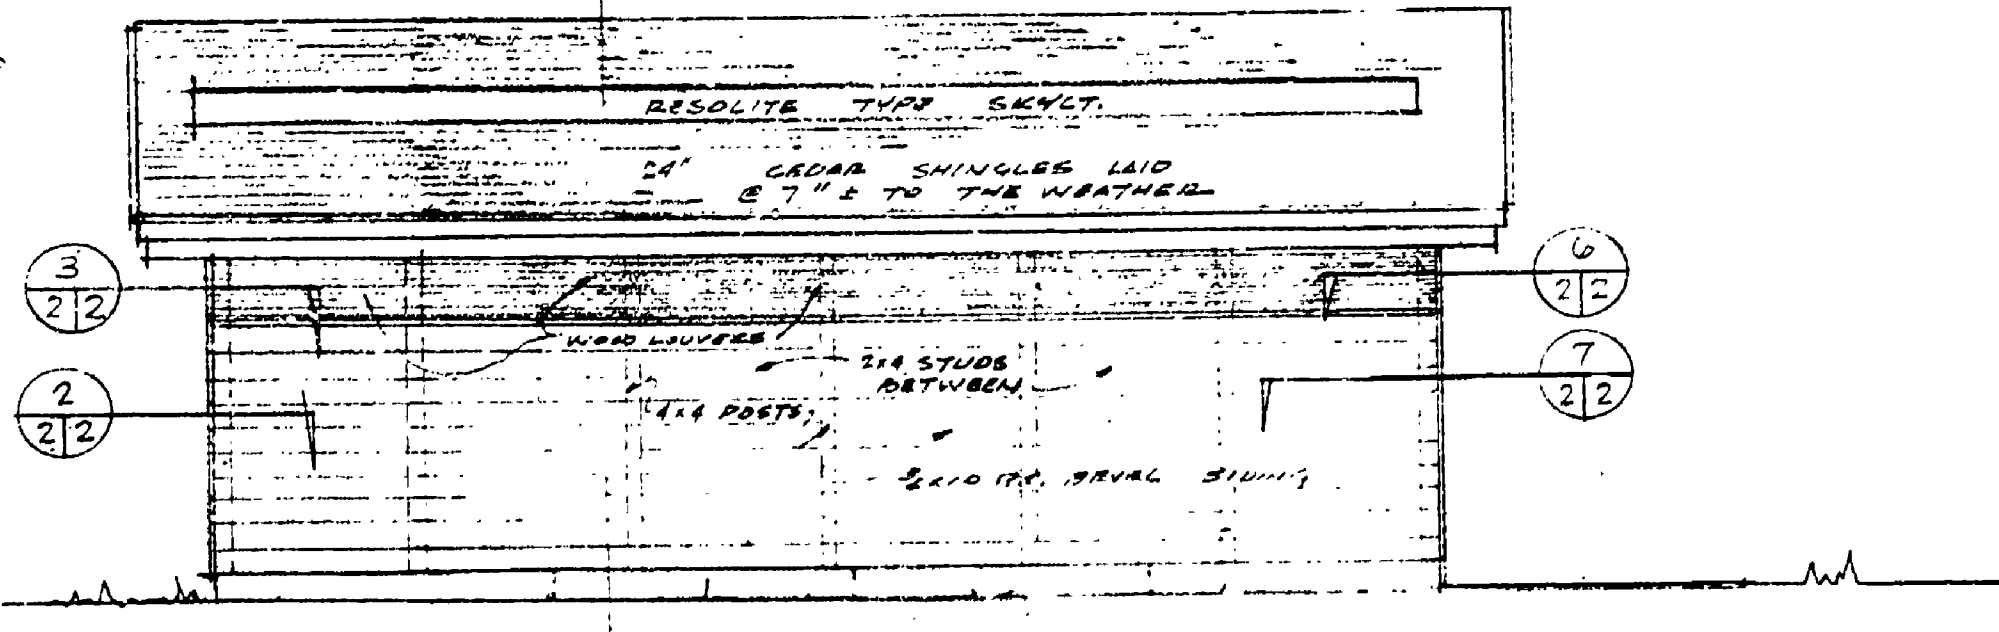 RESOLITE TYPE SKYLT.
24" CEDAR SHINGLES LAID
@ 7" ± TO THE WEATHER
3
2 2
6
2 2
WOOD LOUVERS
2x4 STUDS
BETWEEN
7
2 2
2
2 2
4x4 POSTS
BEVEL SIDING